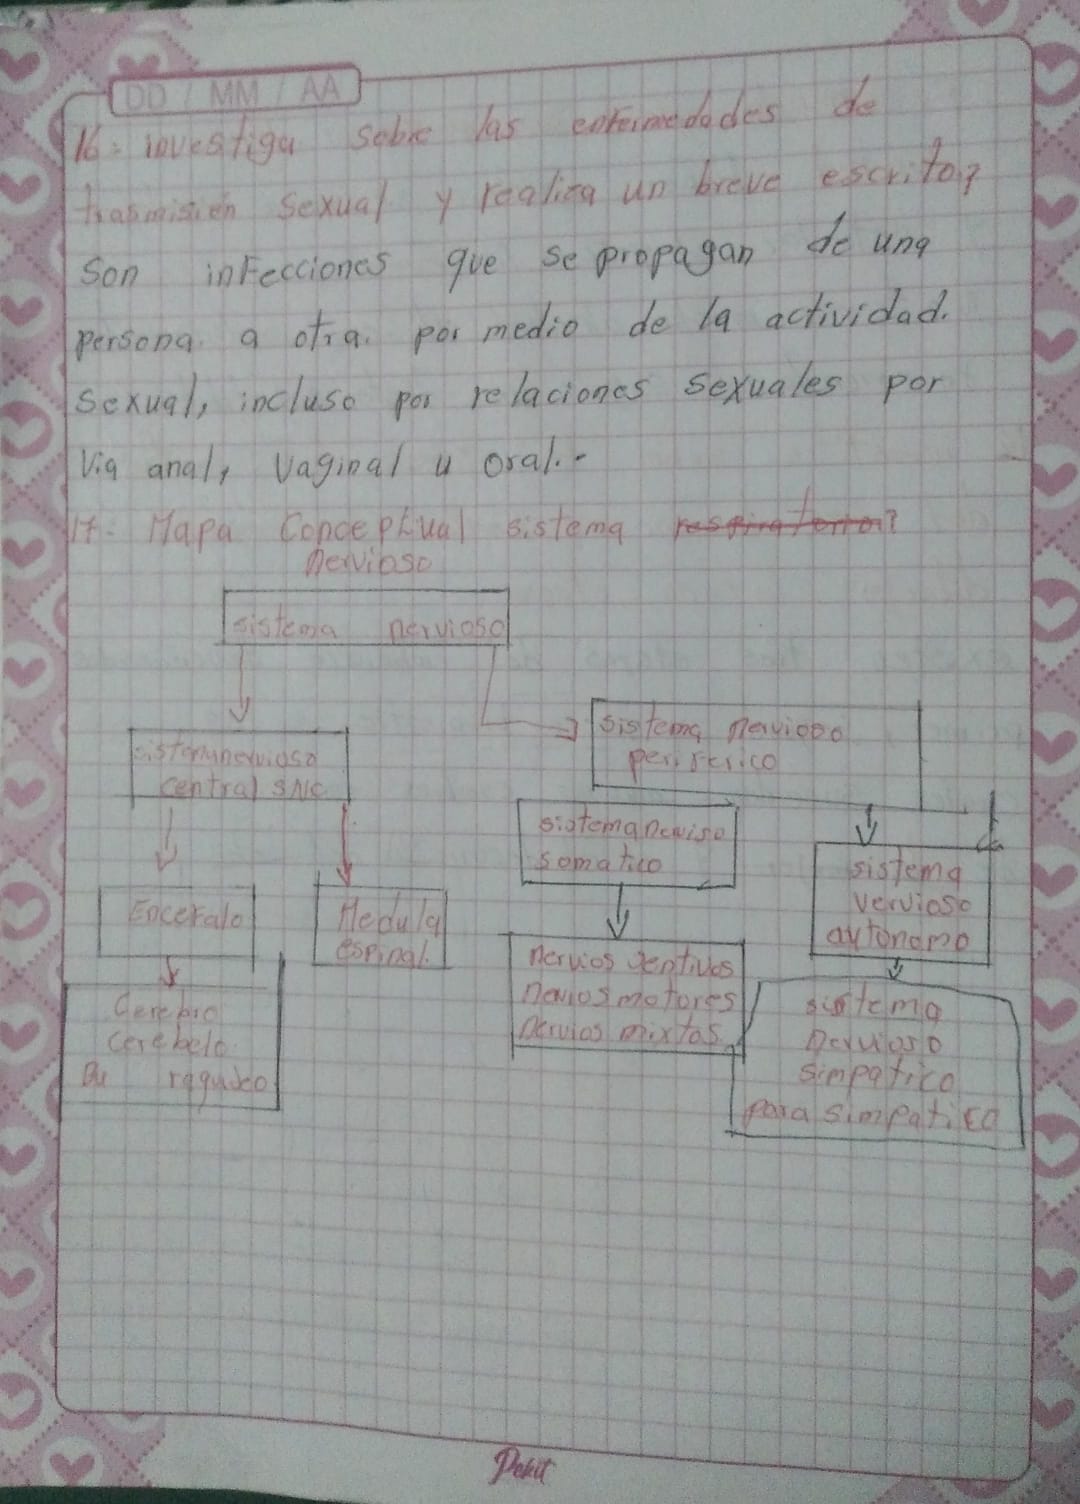 DD / MM / AA
16= investiga sobre las enfermedades de
trasmisión sexual y realiza un breve escrito?
Son infecciones que se propagan de una
persona a otra. por medio de la actividad.
sexual, incluso por relaciones sexuales por
Via anal, vaginal u oral.-
17= Mapa Conceptual sistema respiratorio?
nervioso
sistema nervioso
sistema nervioso
periferico
sistemanervioso
central SNC
sistemanerviso
somatico
sistema
vervioso
autonomo
Encefalo
Medula
espinal.
nervios sentivos
nevios motores
nervios mixtos
Cerebro
cerebelo
raquideo
sistema
Nervioso
simpatico
para simpatico
Pekit